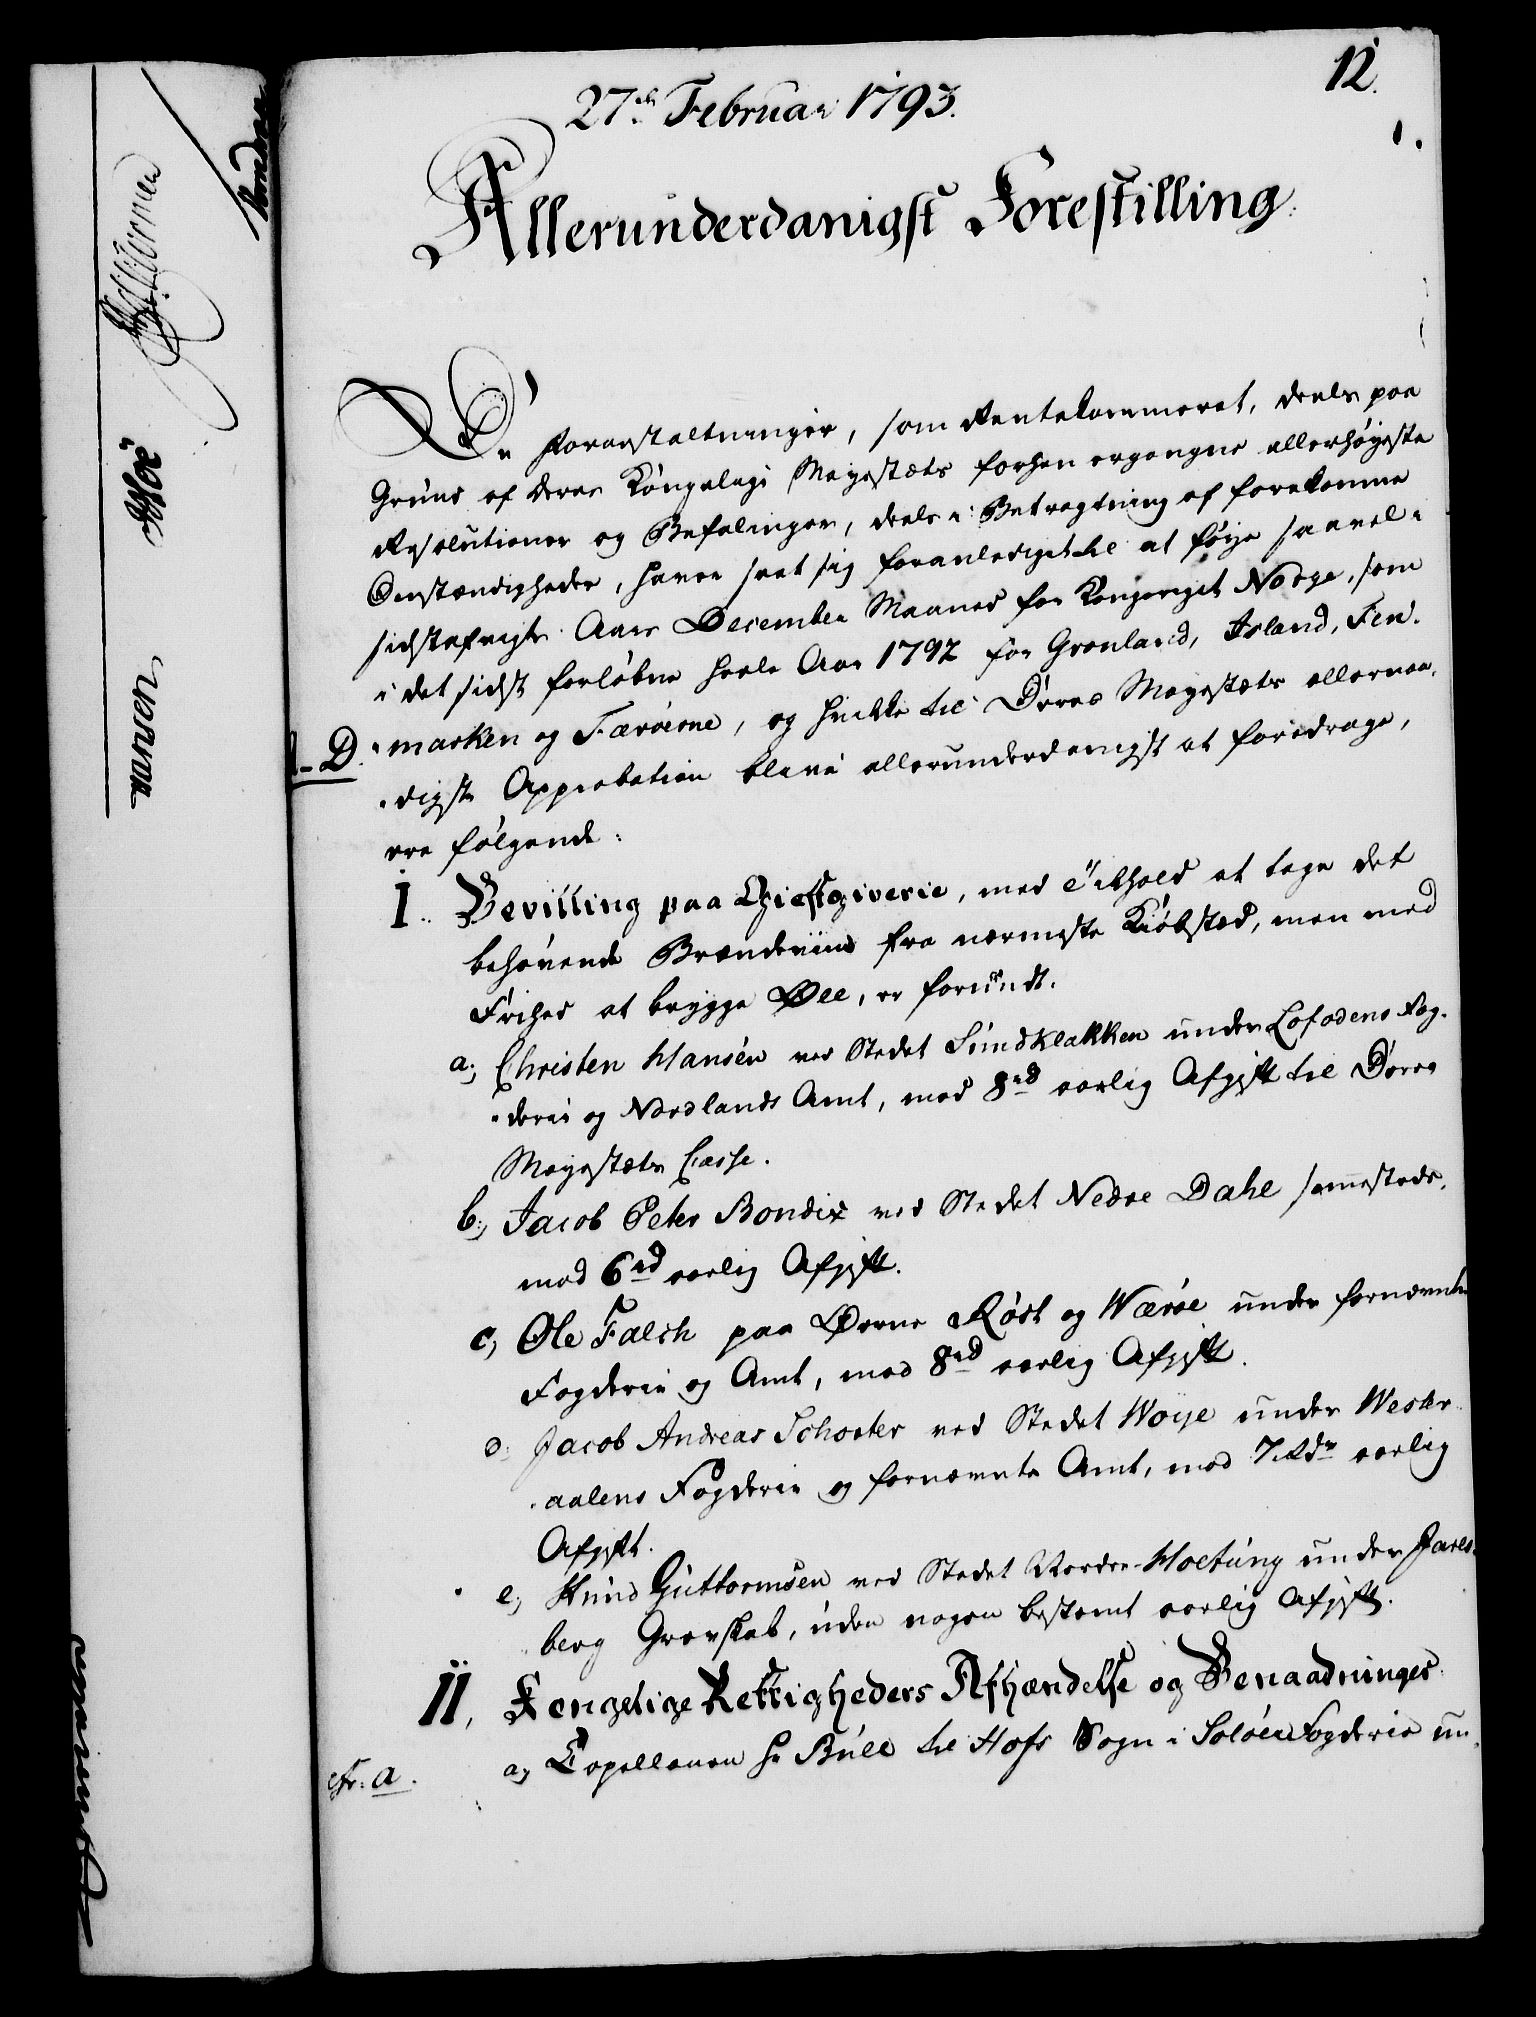 12.
27de Februar 1793.
1.
Allerunderdanigst Forestilling.
De Foranstaltninger, som Rentekammeret, deels paa
Grund af Deres Kongelige Mayestæts forhen ergangne allerhøyeste
Resolutioner og Befalinger, deels i Betragtning af forekomne
Omstændigheder, haver seet sig foranlediget til at føye saavel i
sidstafvigte Aars December Maaned for Kongeriget Norge, som
i det sidst forløbne heele Aar 1792 for Grønland, Island, Fin-
marken og Færøerne, og hvilke til Deres Mayestæts allernaa-
digste Approbation blive allerunderdanigst at foredrage,
ere følgende:
I. Bevilling paa Giestgiverie, med Vilkhold at tage det
behøvende Brændeviin fra nærmeste Kiøbsted, men med
Frihed at brygge Øll, er forundt.
a, Christen Hansen ved Stedet Sundklakken under Lofodens Fog-
derie og Nordlands Amt, mod 8rd aarlig Afgift til Deres
Mayestæts Casse.
b, Jacob Peter Bondix ved Stedet Nedre Dahl sammesteds,
mod 6rd aarlig Afgift.
c, Ole Falch paa Øerne Røst og Wærøe under fornævnte
Fogderie og Amt, mod 8rd aarlig Afgift.
d. Jacob Andreas Schoeter ved Stedet Woye under Wester-
aalens Fogderie og fornævnte Amt, mod 7 Rdr aarlig
Afgift.
e, Knud Guttormsen ved Stedet Nordre-Holtung under Jarls-
berg Grevskab, uden nogen bestemt aarlig Afgift.
II, Kongelige Rettigheders Afhændelse og Benaadninger
cfr: a.
a, Capellanen Hr Bull til Hofs Sogn i Soløer Fogderie un-